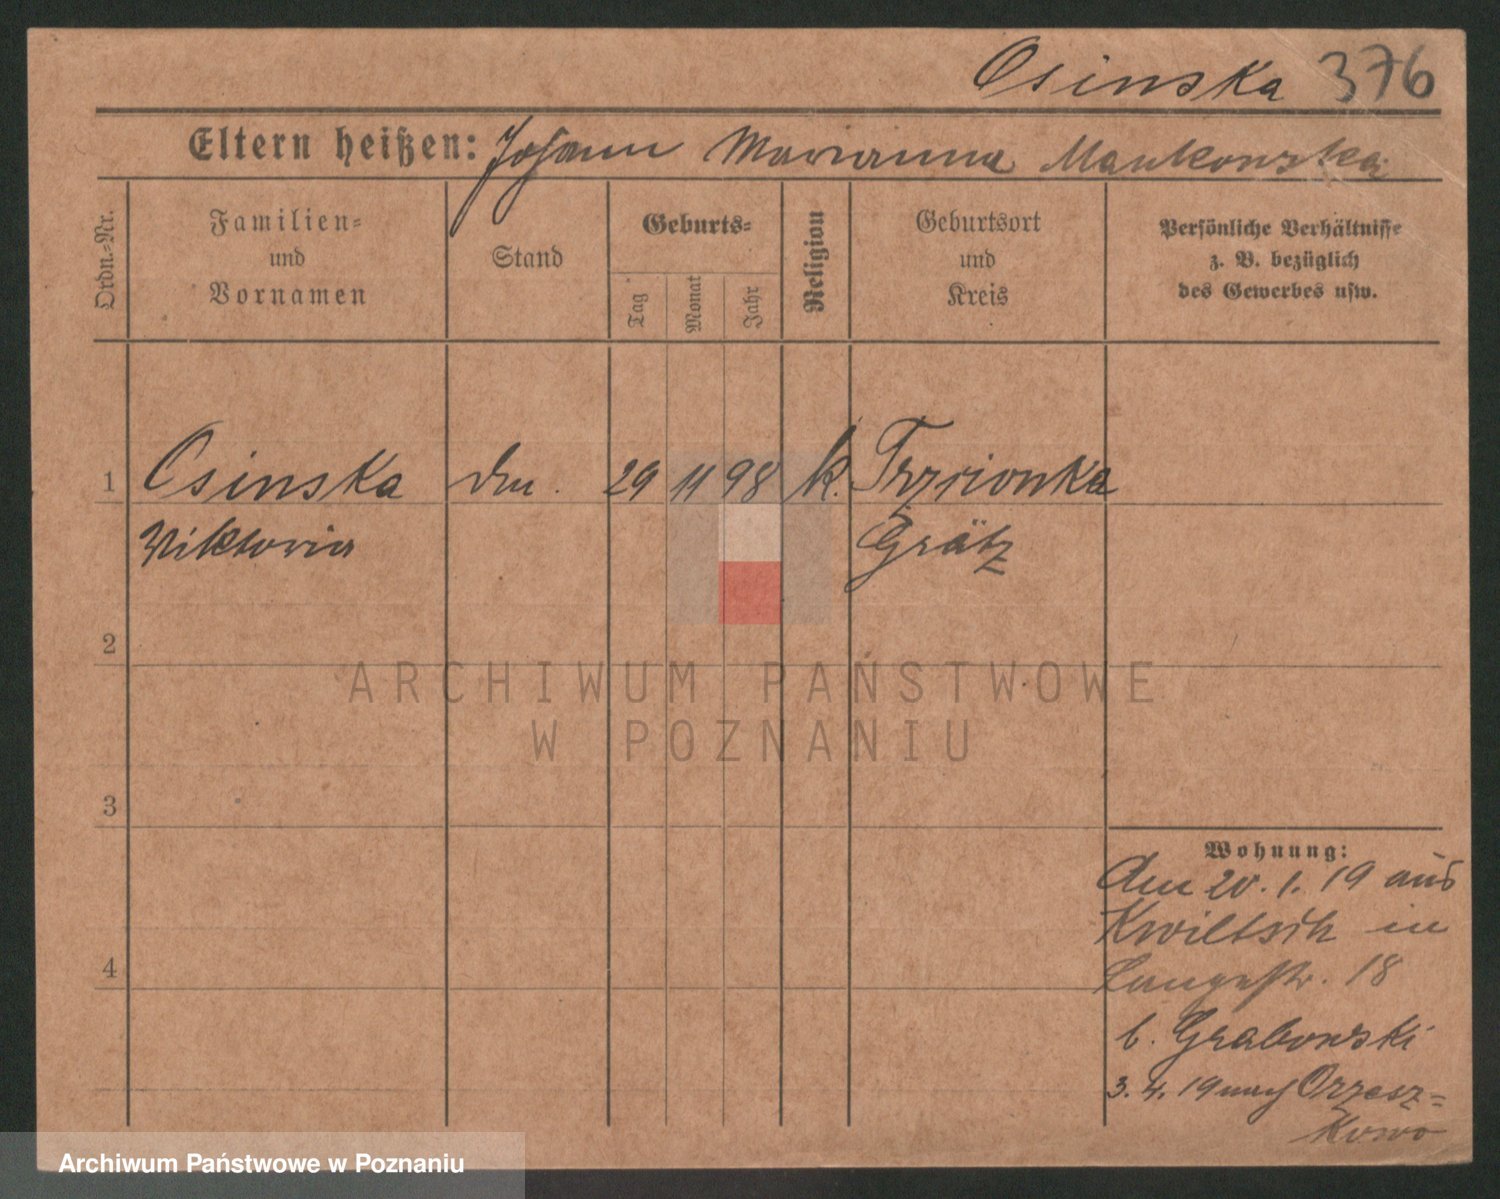 Osinska 376
Eltern heißen: Johann Marianna Mankowska
Ordn.-Nr.
Familien-
und
Vornamen
Stand
Geburts-
Tag
Monat
Jahr
Religion
Geburtsort
und
Kreis
Persönliche Verhältnisse
z. B. bezüglich
des Gewerbes usw.
1 Osinska 29 11 98 k. Trzcionka
Viktoria Grätz
2
ARCHIWUM PAŃSTWOWE
W POZNANIU
3
Wohnung:
Am 20. 1. 19 aus
Kwiltsch in
4
Langestr. 18
b. Grabowski
3. 4. 19 nach Orzesz=
kowo
Archiwum Państwowe w Poznaniu